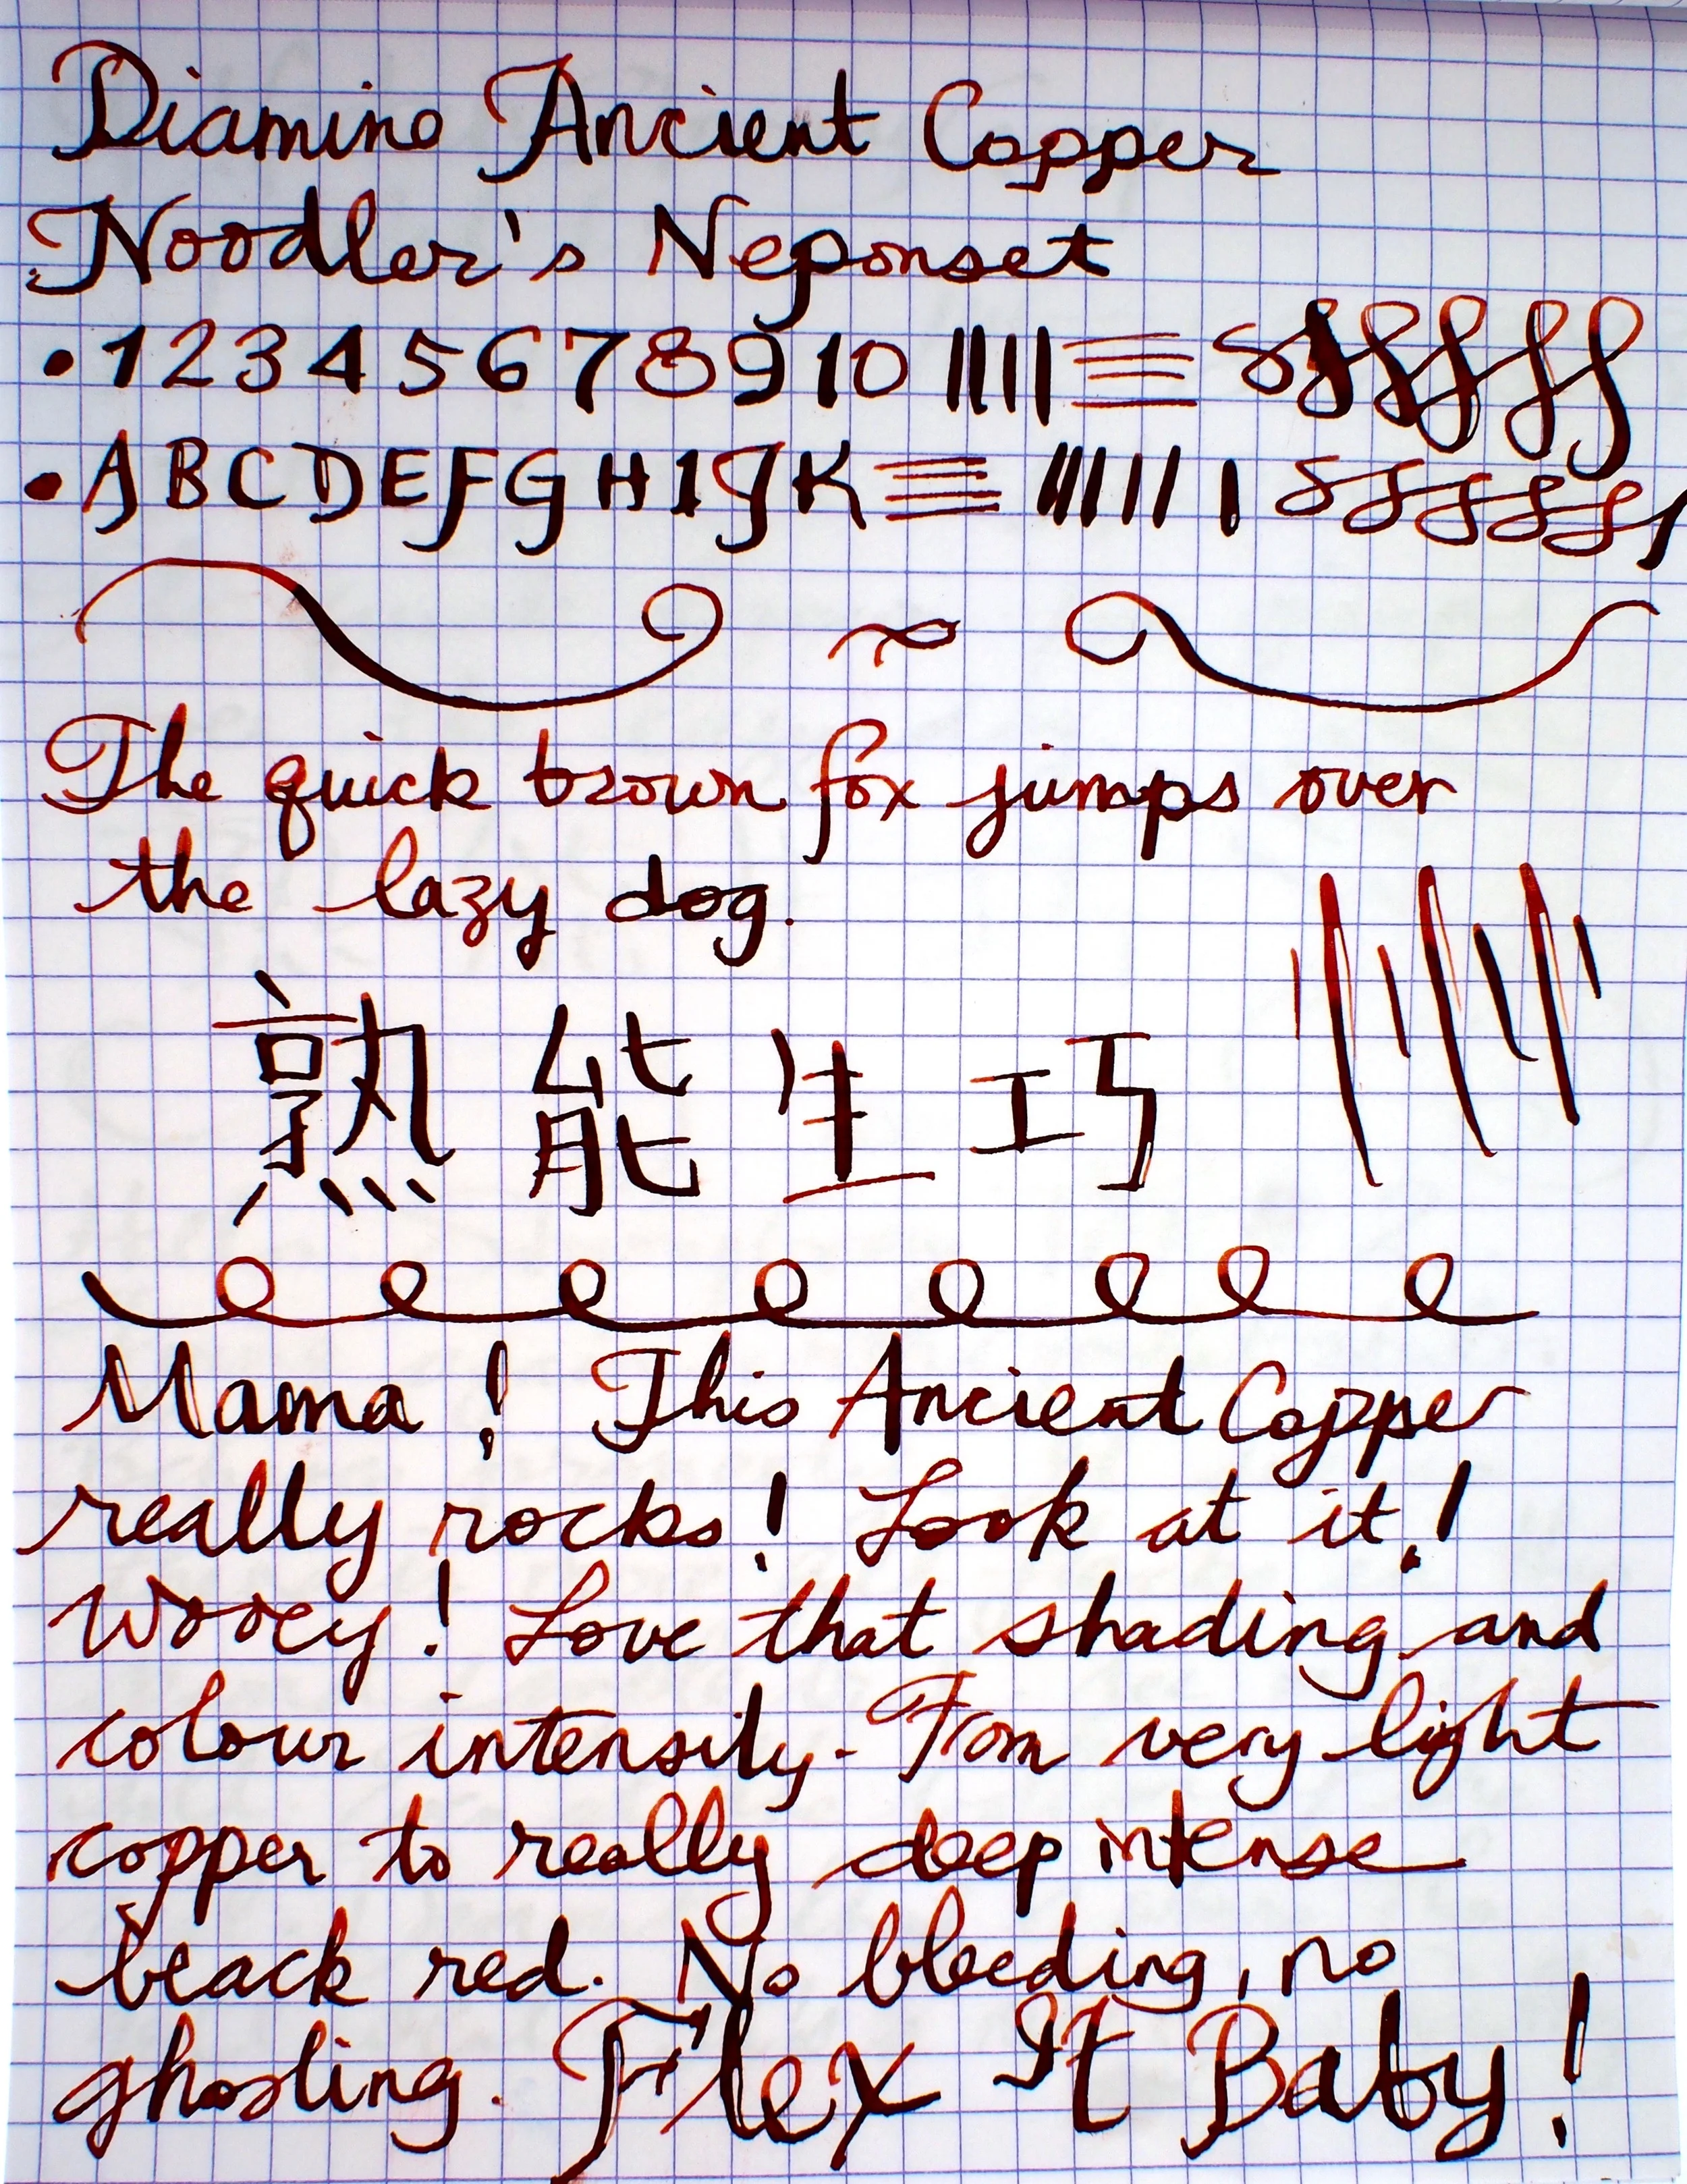 Diamine Ancient Copper
Noodler's Neponset
• 1 2 3 4 5 6 7 8 9 10
• A B C D E F G H I J K
The quick brown fox jumps over
the lazy dog.
熟能生巧
Mama! This Ancient Copper
really rocks! Look at it!
Wooey! Love that shading and
colour intensity. From very light
copper to really deep intense
black red. No bleeding, no
ghosting. Flex It Baby!